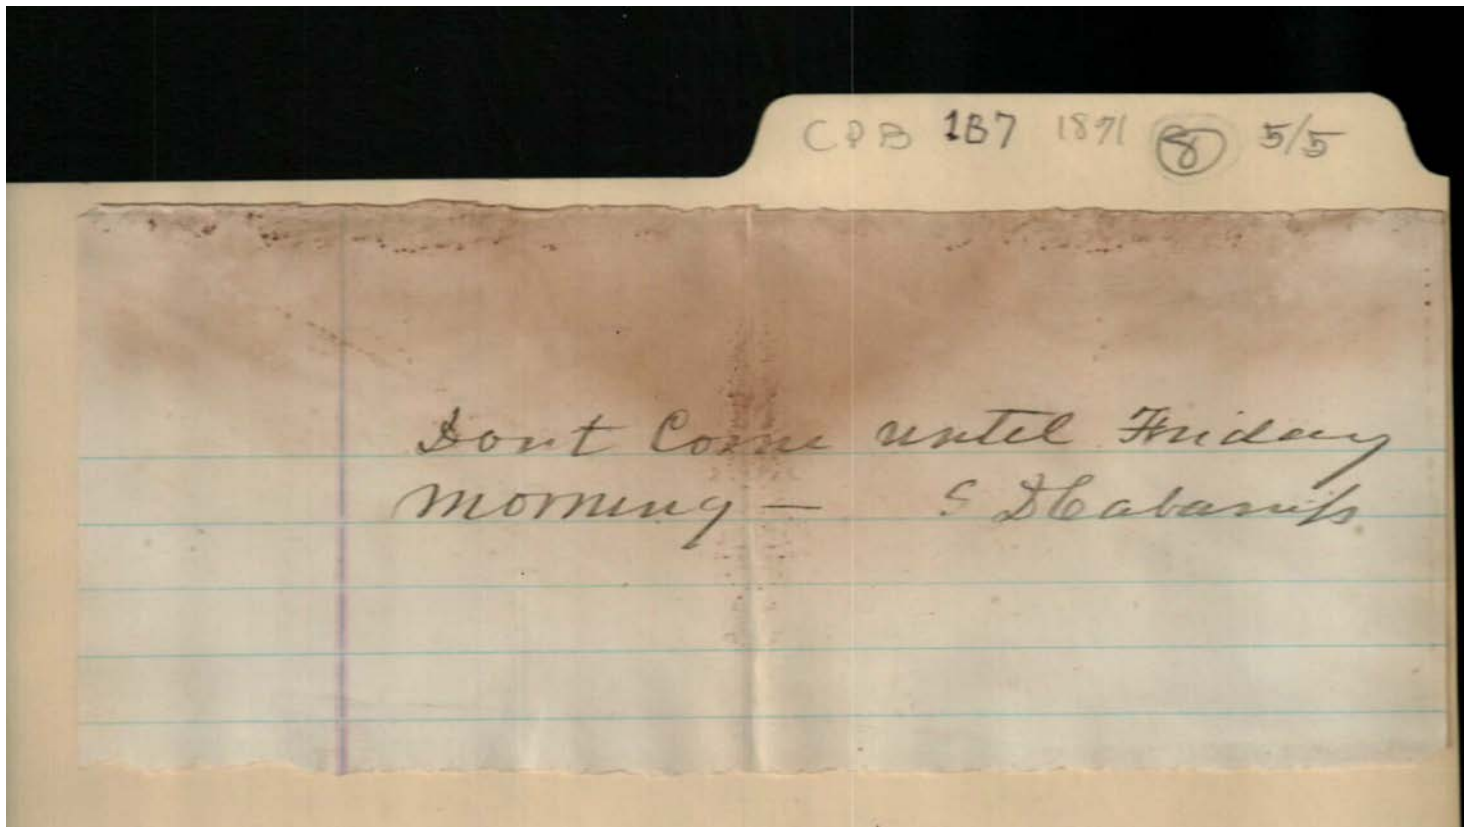 CPB 1B7 1871 8 5/5
Dont Come until Friday
morning — S D Cabaniss